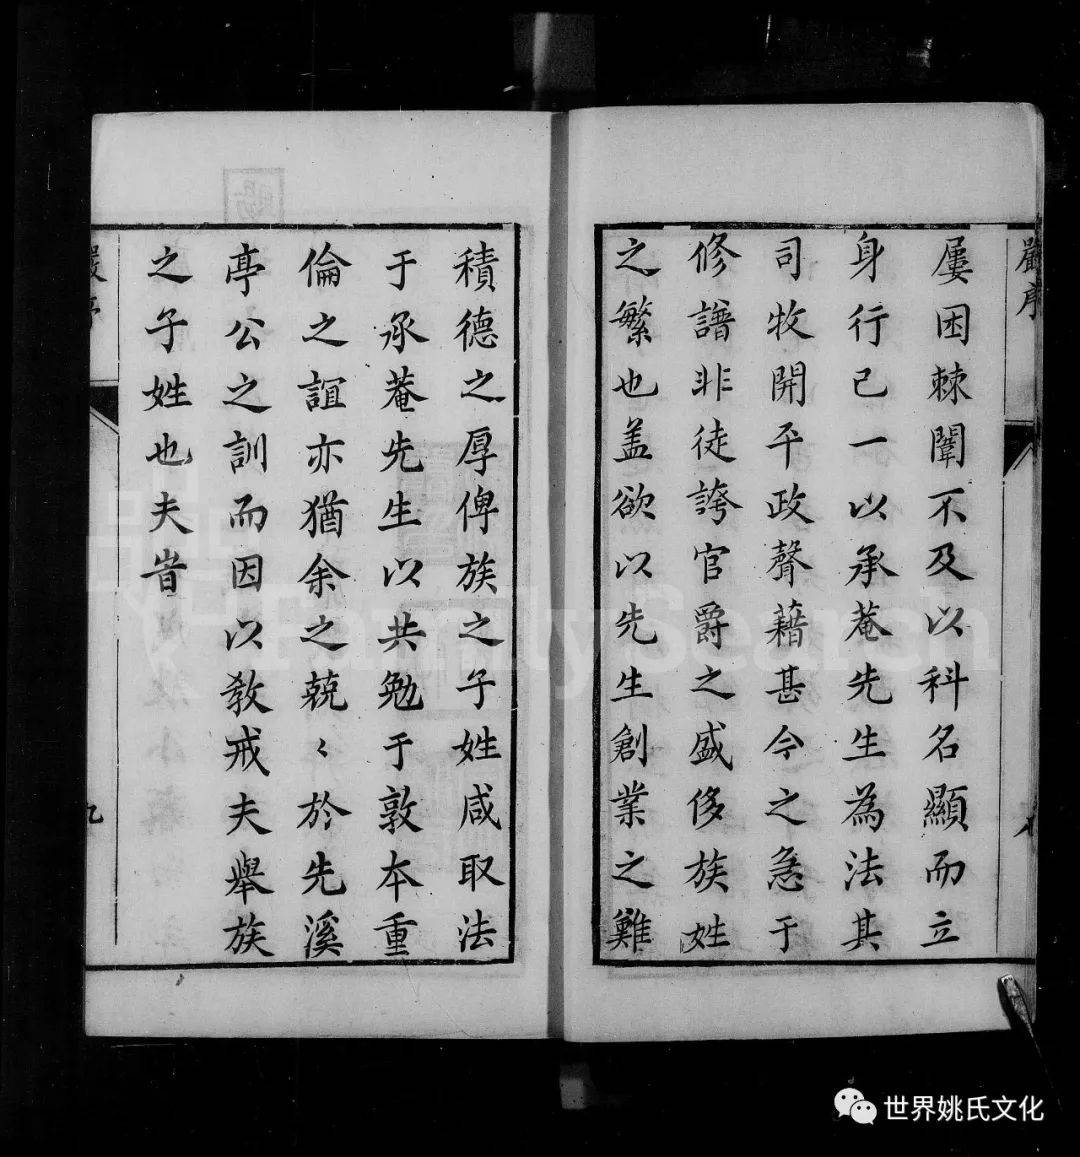 嚴序
屢困棘闈不及以科名顯而立
身行己一以承菴先生為法其
司牧開平政聲藉甚今之急于
修譜非徒誇官爵之盛侈族姓
之繁也盖欲以先生創業之難
八
積德之厚俾族之子姓咸取法
于承菴先生以共勉于敦本重
倫之誼亦猶余之兢〻於先溪
亭公之訓而因以敎戒夫舉族
之子姓也夫旹
嚴序
九
FamilySearch
世界姚氏文化